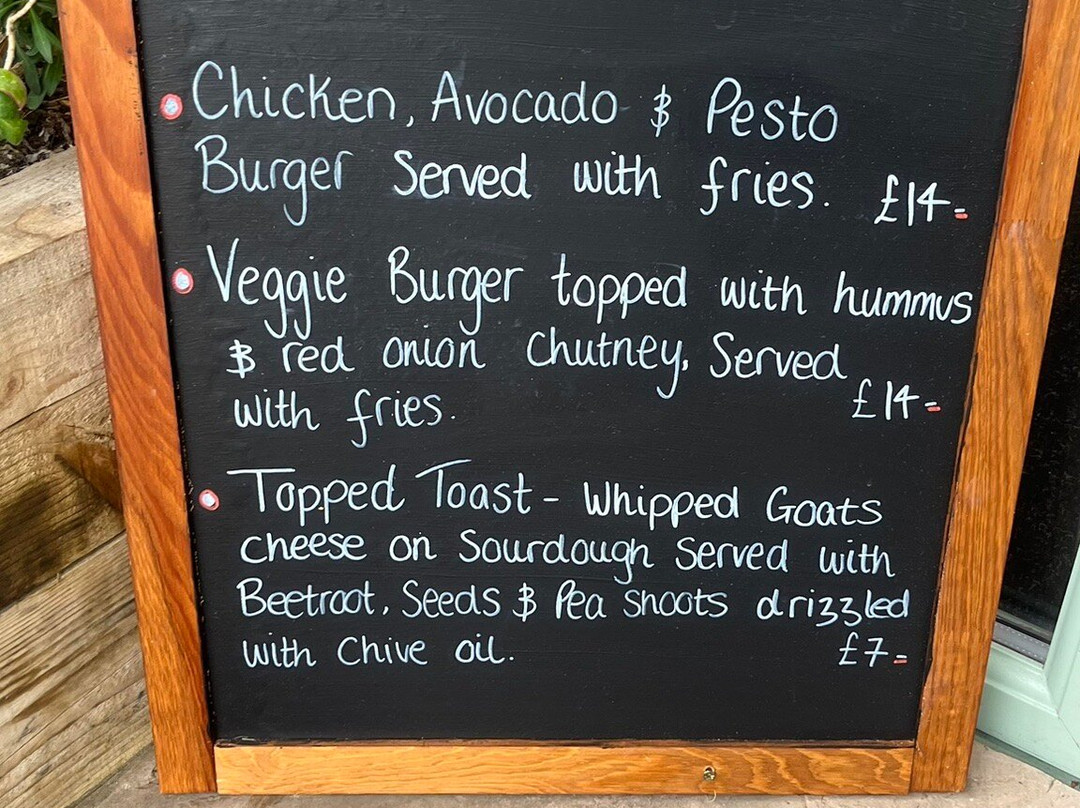 Chicken, Avocado & Pesto
Burger Served with fries. £14-
Veggie Burger topped with hummus
& red onion chutney, Served
with fries. £14-
Topped Toast - Whipped Goats
cheese on Sourdough Served with
Beetroot, Seeds & Pea Shoots drizzled
with Chive oil. £7-